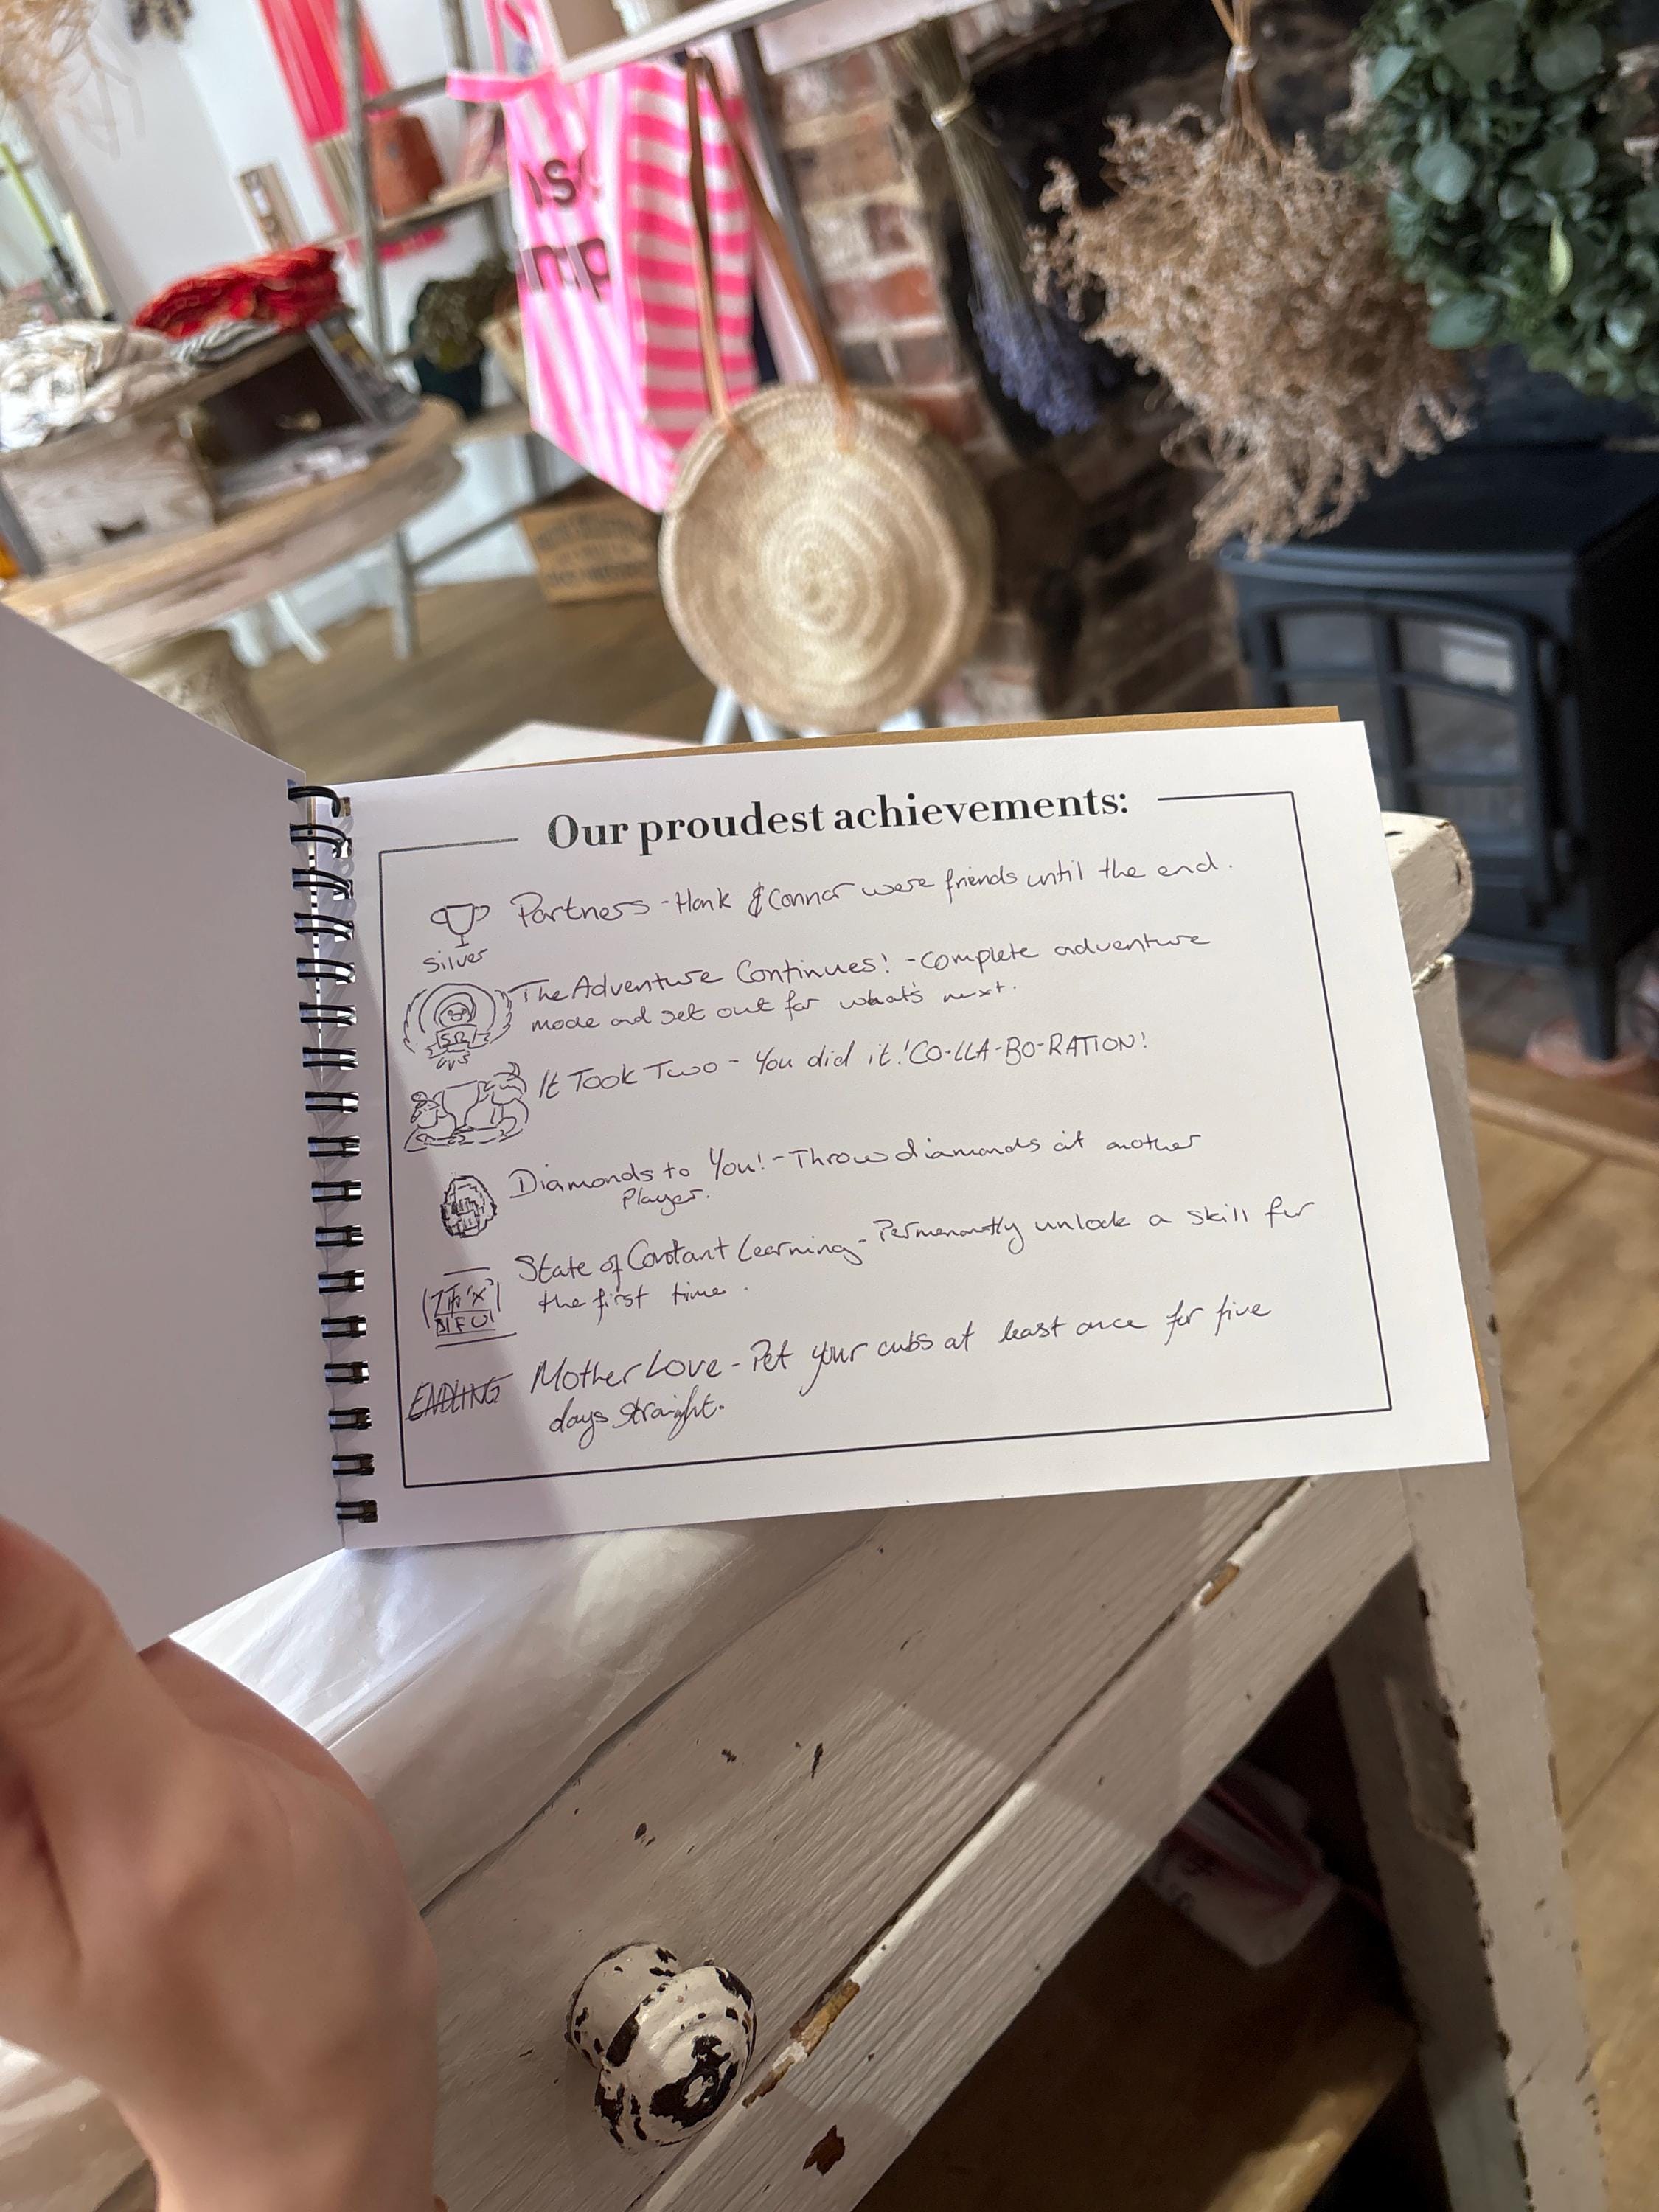 Our proudest achievements:
Partners - Hank & Connor were friends until the end.
silver
The Adventure Continues! - complete adventure
mode and set out for what's next.
SR
It Took Two - You did it! CO-LLA-BO-RATION!
Diamonds to You! - Throw diamonds at another
Player.
State of Constant Learning - Permenantly unlock a skill for
the first time.
SIFU
ENDLING
Mother Love - Pet your cubs at least once for five
days straight.